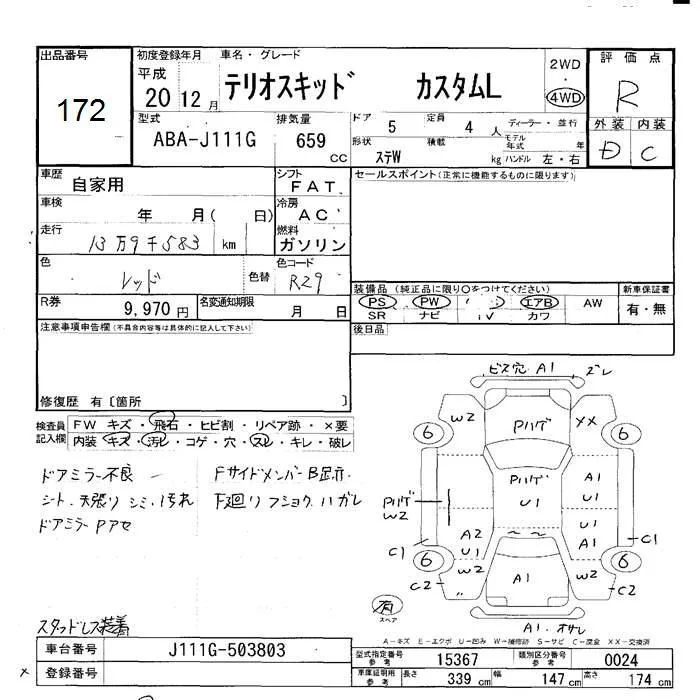 出品番号
172
初度登録年月
平成
20 12 月
車名・グレード
テリオスキッド カスタムL
2WD
・
4WD
評価点
R
外装 内装
D C
型式
ABA-J111G
排気量
659
CC
ドア 5
定員 4 人
ディーラー・並行
形状 ステW
積載 kg
モデル年式 年
ハンドル 左・右
車歴
自家用
シフト
FAT
セールスポイント(正常に機能するものに限り)
車検
年 月( 日)
冷房
AC
走行
13万9千583 km
燃料
ガソリン
色
レッド
色替
色コード
R29
R券
9,970 円
名変通知期限
月 日
装備品 (純正品に限り○をつけてください)
PS PW エアB AW
SR ナビ TV カワ
新車保証書
有・無
後日品
注意事項申告欄(不具合内容等は具体的に記入して下さい)
修復歴 有〔箇所 〕
検査員
記入欄
FW キズ・飛石・ヒビ割・リペア跡・×要
内装 キズ・汚レ・コゲ・穴・スレ・キレ・破レ
ドアミラー不良
シート、天張り シミ、汚れ
ドアミラー Pアセ
Fサイドメンバー B歪み
下廻り フショク、ハガレ
スタッドレス装着
ビス穴 A1 ズレ
W2 Pハゲ XX
6 6
Pハゲ U1
A1 U1
Pハゲ
W2
U1 A1
A2 U1
C1 C1
6 6
W2 W2
C2 C2
A1
有
スペア
A1、オサレ
A-キズ E-エクボ U-凹み W-補修跡 S-サビ C-腐食 XX-交換済
車台番号 J111G-503803
× 登録番号
型式指定番号 参考 15367
類別区分番号 参考 0024
車庫証明用 参考
長さ 339 cm
幅 147 cm
高さ 174 cm